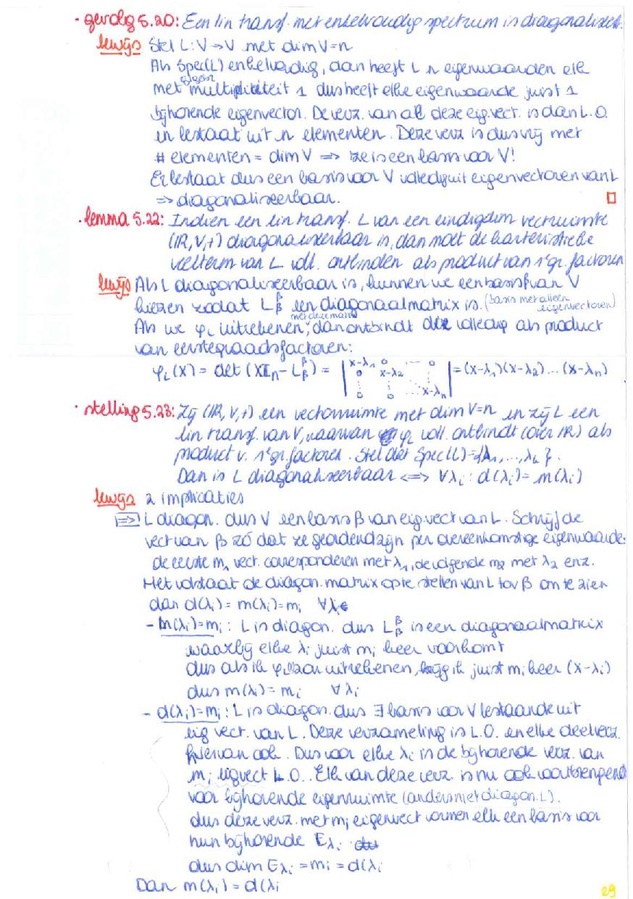 · gevolg 5.20: Een lin transf. met enkelvoudig spectrum is diagonaliseerb.
bewijs Stel L: V → V met dim V = n
Als Spec(L) enkelvoudig, dan heeft L n eigenwaarden elk
met multipliciteit 1 dus heeft elke eigenwaarde juist 1
bijhorende eigenvector. De verz. van al deze eig.vect. is dan L.O.
en bestaat uit n elementen. Deze verz is dus vrij met
# elementen = dim V ⇒ ze is een basis voor V!
Er bestaat dus een basis voor V volledig uit eigenvectoren van L
⇒ diagonaliseerbaar.
· lemma 5.22: Indien een lin transf. L van een eindigdim vectruimte
(IR,V,+) diagonaliseerbaar is, dan moet de karakteristieke
veelterm van L voll. ontbinden als product van 1ᵉgr. factoren
bewijs Als L diagonaliseerbaar is, kunnen we een basis β van V
kiezen zodat L_β^β een diagonaalmatrix is. (basis met alleen eigenvectoren)
Als we φ_L uitrekenen, met deze matrix dan ontbindt deze volledig als product
van eerstegraadsfactoren:
φ_L(x) = det(xI_n - L_β^β) = | x-λ₁ 0 ... 0 0 x-λ₂ ... 0 ... x-λ_n | = (x-λ₁)(x-λ₂)...(x-λ_n)
· stelling 5.23: Zij (IR,V,+) een vectorruimte met dim V=n en zij L een
lin transf. van V, waarvan φ_L voll. ontbindt (over IR) als
product v. 1ᵉgr. factoren. Stel dat Spec(L)={λ₁,...,λ_k}.
Dan is L diagonaliseerbaar ⟺ ∀λᵢ: d(λᵢ)=m(λᵢ)
bewijs 2 implicaties
⇒ L diagon. dus V een basis β van eig.vect van L. Schrijf de
vect van β zó dat ze geordend zijn per overeenkomstige eigenwaarde:
de eerste m₁ vect. corresponderen met λ₁, de volgende m₂ met λ₂ enz.
Het volstaat de diagon. matrix op te stellen van L tov β om te zien
dan d(λᵢ) = m(λᵢ) = mᵢ ∀λᵢ
- m(λᵢ)=mᵢ: L is diagon. dus L_β^β is een diagonaalmatrix
waarbij elke λᵢ juist mᵢ keer voorkomt
dus als ik φ_L zou uitrekenen, krijg ik juist mᵢ keer (x-λᵢ)
dus m(λᵢ) = mᵢ ∀λᵢ
- d(λᵢ)=mᵢ: L is diagon. dus ∃ basis voor V bestaande uit
eig vect. van L. Deze verzameling is L.O. en elke deelverz.
hiervan ook. Dus voor elke λᵢ is de bijhorende verz. van
mᵢ eigvect L.O.. Elk van deze verz is nu ook voortbrengend
voor bijhorende eigenruimte (anders niet diagon. L).
dus deze verz. met mᵢ eigenvect vormen elk een basis voor
hun bijhorende E_λᵢ
dus dim E_λᵢ = mᵢ = d(λᵢ
Dan m(λᵢ) = d(λᵢ
29